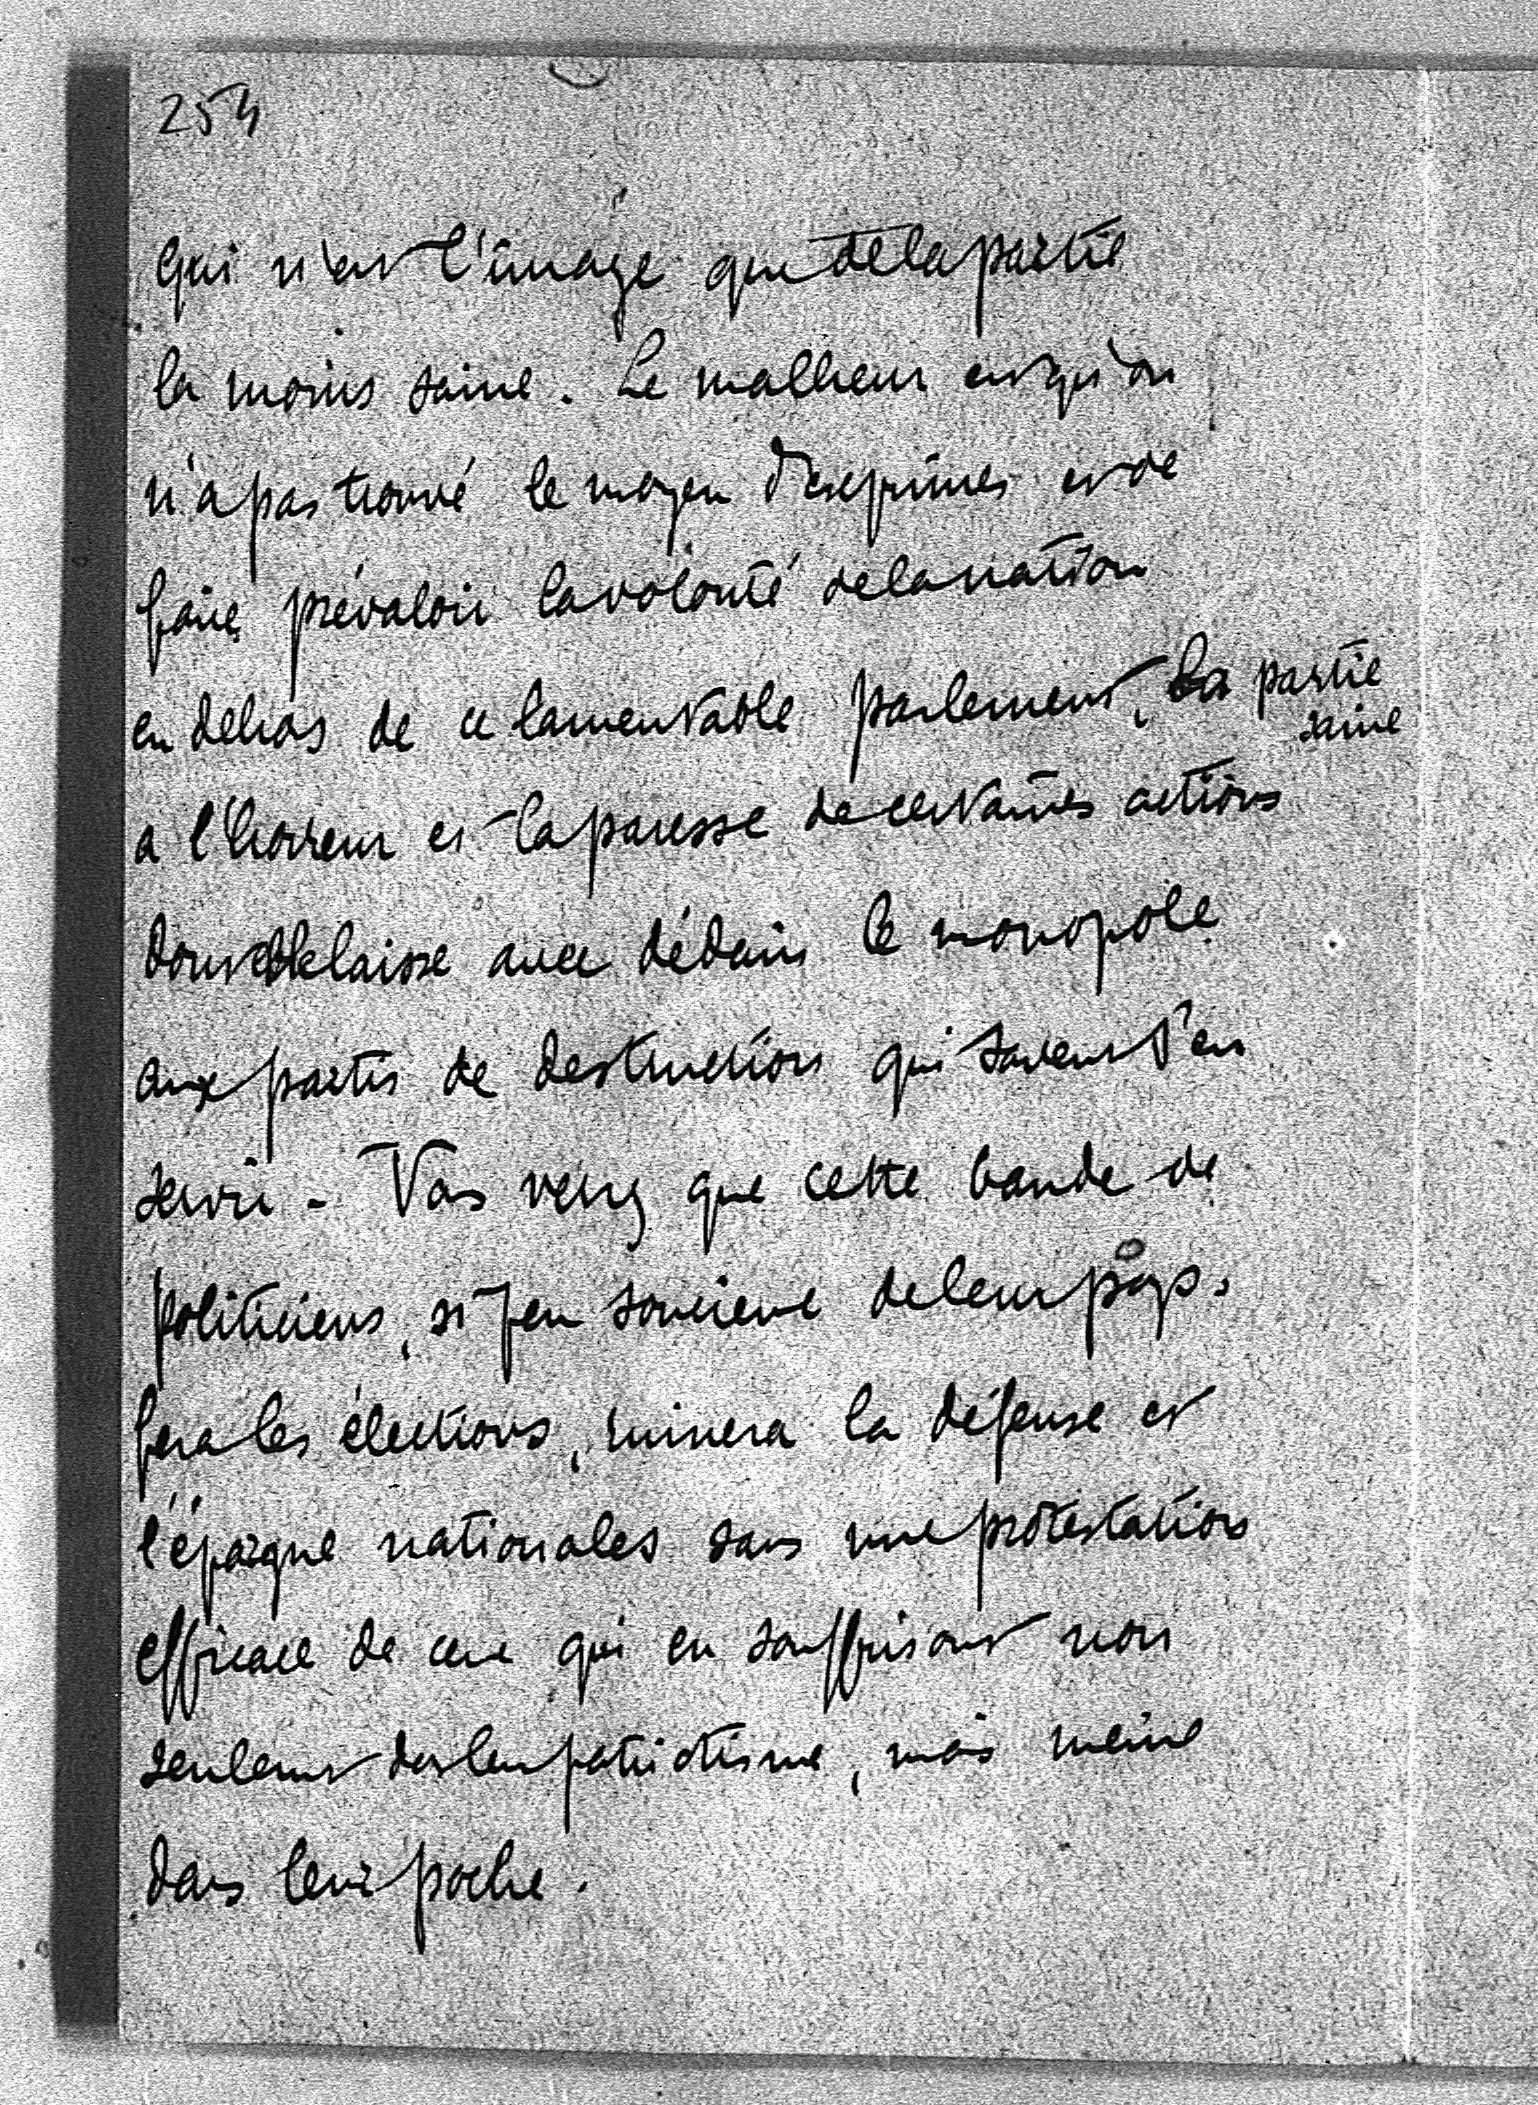 254
qui n'est l'image que de la partie
la moins saine. Le malheur est qu'on
n'a pas trouvé le moyen d'exprimer et de
faire prévaloir la volonté de la nation
en dehors de ce lamentable parlement. La partie
saine
a l'horreur et la paresse de certaines actions
dont elle laisse avec dédain le monopole
aux partis de destruction qui savent s'en
servir. Vous verrez que cette bande de
politiciens, si peu soucieuse de leur pays,
fera les élections, ruinera la défense et
l'épargne nationales sans une protestation
efficace de ceux qui en souffriront non
seulement dans leur patriotisme, mais même
dans leur poche.